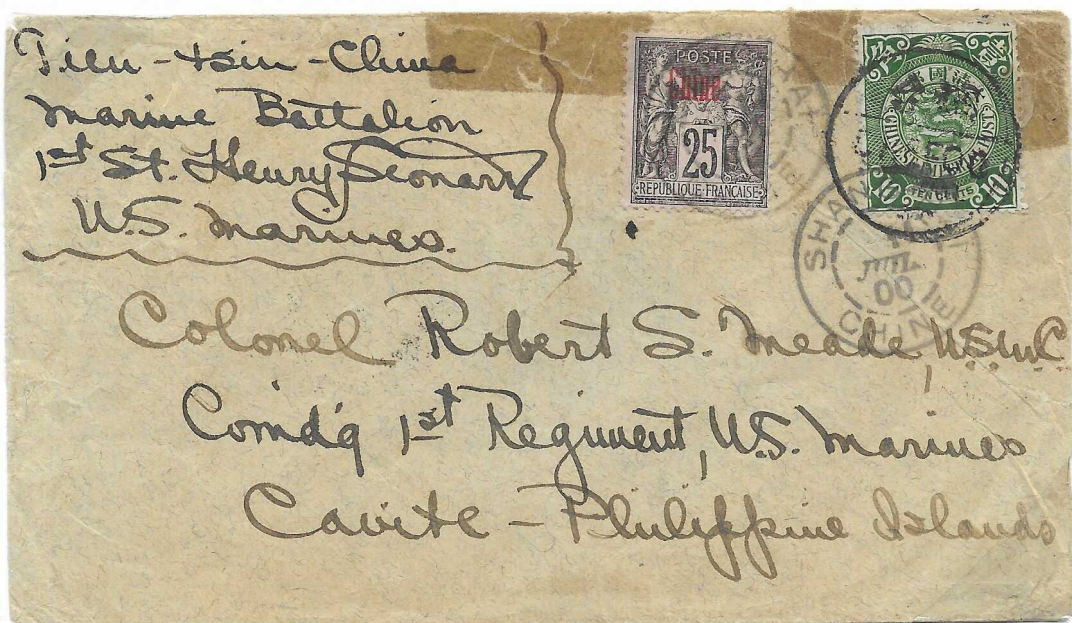 Tien-tsin-China
Marine Battalion
1st Lt. Henry Leonard
U.S. Marines.
POSTE
Chine
25
REPUBLIQUE FRANÇAISE
10
TEN CENTS
10
SHANG
JUIL
00
CHINE
Colonel Robert S. Meade, U.S.M.C
Comd'g 1st Regiment, U.S. Marines
Cavite - Philippine Islands